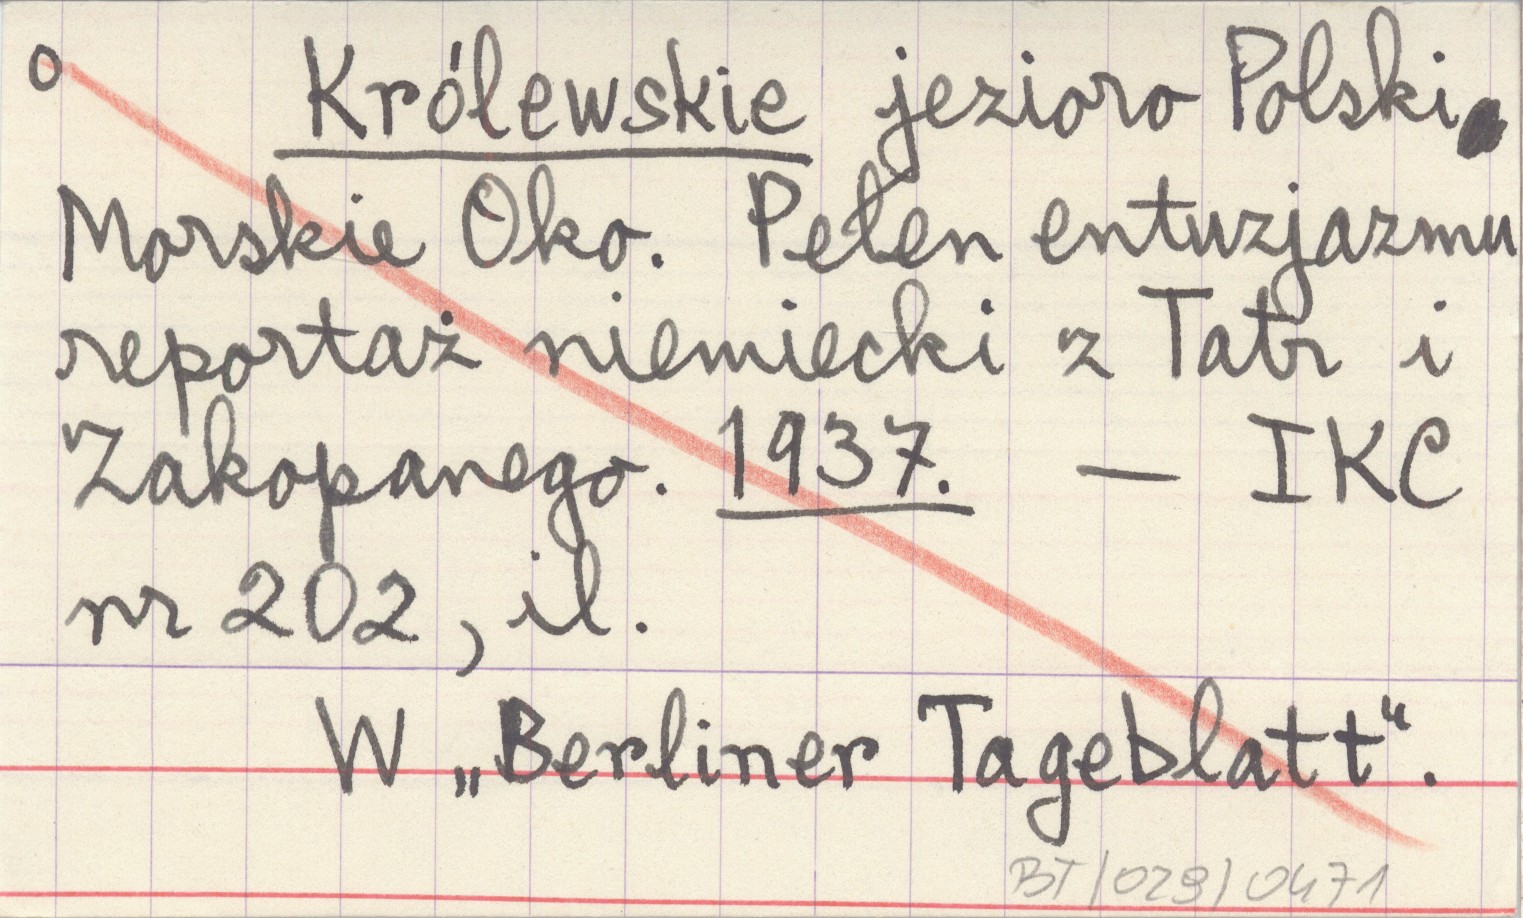 o Królewskie jezioro Polski
Morskie Oko. Pełen entuzjazmu
reportaż niemiecki z Tatr i
Zakopanego. 1937. — IKC
nr 202, il.
W „Berliner Tageblatt“.
BT/029/0471